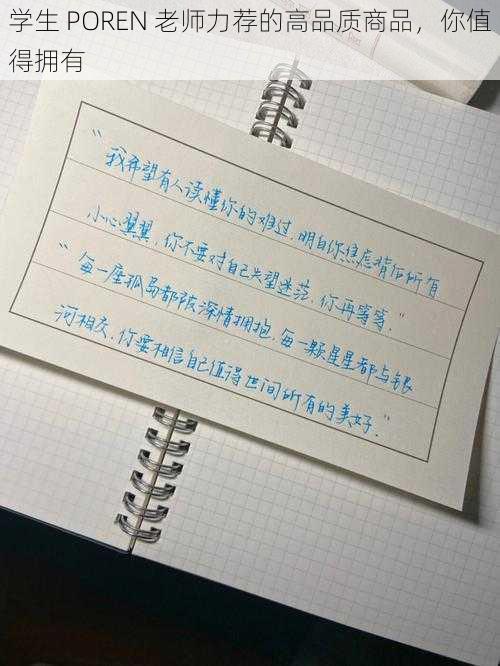 学生 POREN 老师力荐的高品质商品，你值
得拥有
“我希望有人读懂你的难过,明白你焦虑背后所有
小心翼翼,你不要对自己失望迷茫,你再等等.”
“每一座孤岛都被深情拥抱,每一颗星星都与银
河相交,你要相信自己值得世间所有的美好.”